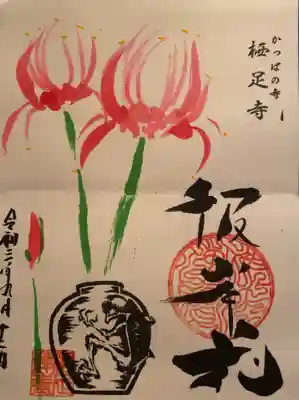 かっぱの寺
栖足寺
彼岸花
令和三年九月